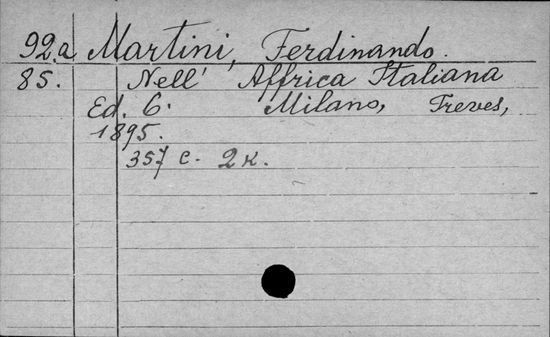 92.a Martini, Ferdinando.
85. Nell' Affrica Italiana
Ed. 6. Milano, Treves,
1895.
357 c. 2 к.